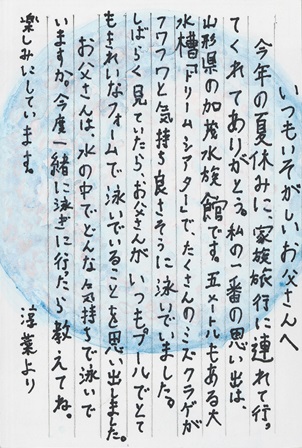 いつもいそがしいお父さんへ
今年の夏休みに、家族旅行に連れて行っ
てくれてありがとう。私の一番の思い出は、
山形県の加茂水族館です。五メートルもある大
水槽「ドリームシアター」で、たくさんのミズクラゲが
フワフワと気持ち良さそうに泳いでいました。
しばらく見ていたら、お父さんがいつもプールでとて
もきれいなフォームで泳いでいることを思い出しました。
お父さんは、水の中でどんな気持ちで泳いで
いますか。今度一緒に泳ぎに行たら教えてね。
楽しみにしています。
淳葉より